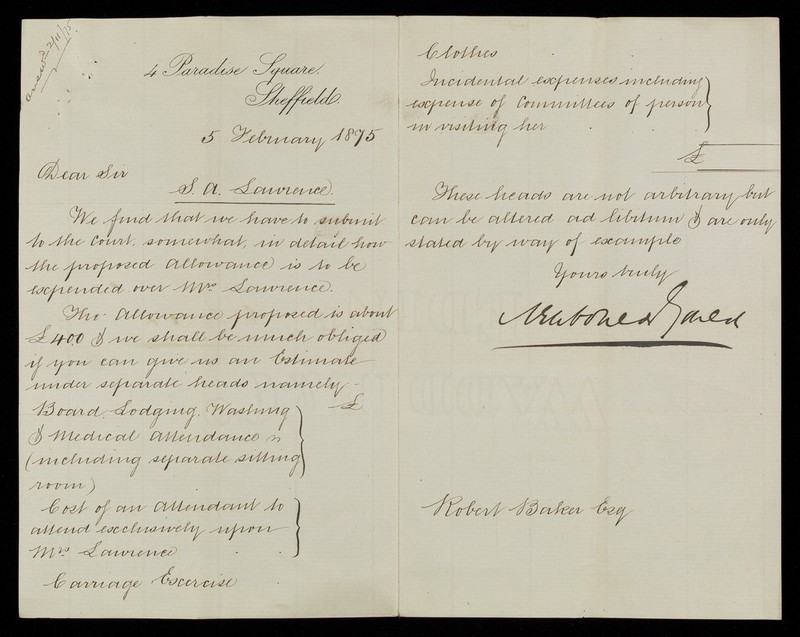 answd 2/11/75
4 Paradise Square.
Sheffield.
5 February 1875
Dear Sir
S. A. Lawrence.
We find that we have to submit
to the Court, somewhat, in detail how
the proposed Allowance is to be
expended over Mrs Lawrence.
The Allowance proposed is about
£400 & we shall be much obliged
if you can give us an Estimate
under separate heads namely -
Board Lodging. Washing £
& Medical Attendance
(including separate sitting
room)
Cost of an Attendant to
attend exclusively upon
Mrs Lawrence
Carriage Exercise
Clothes
Incidental expenses including
expense of Committees of person
in visiting her
£
These heads are not arbitrary but
can be altered ad libitum & are only
stated by way of example
Yours truly
Robert Baker Esq